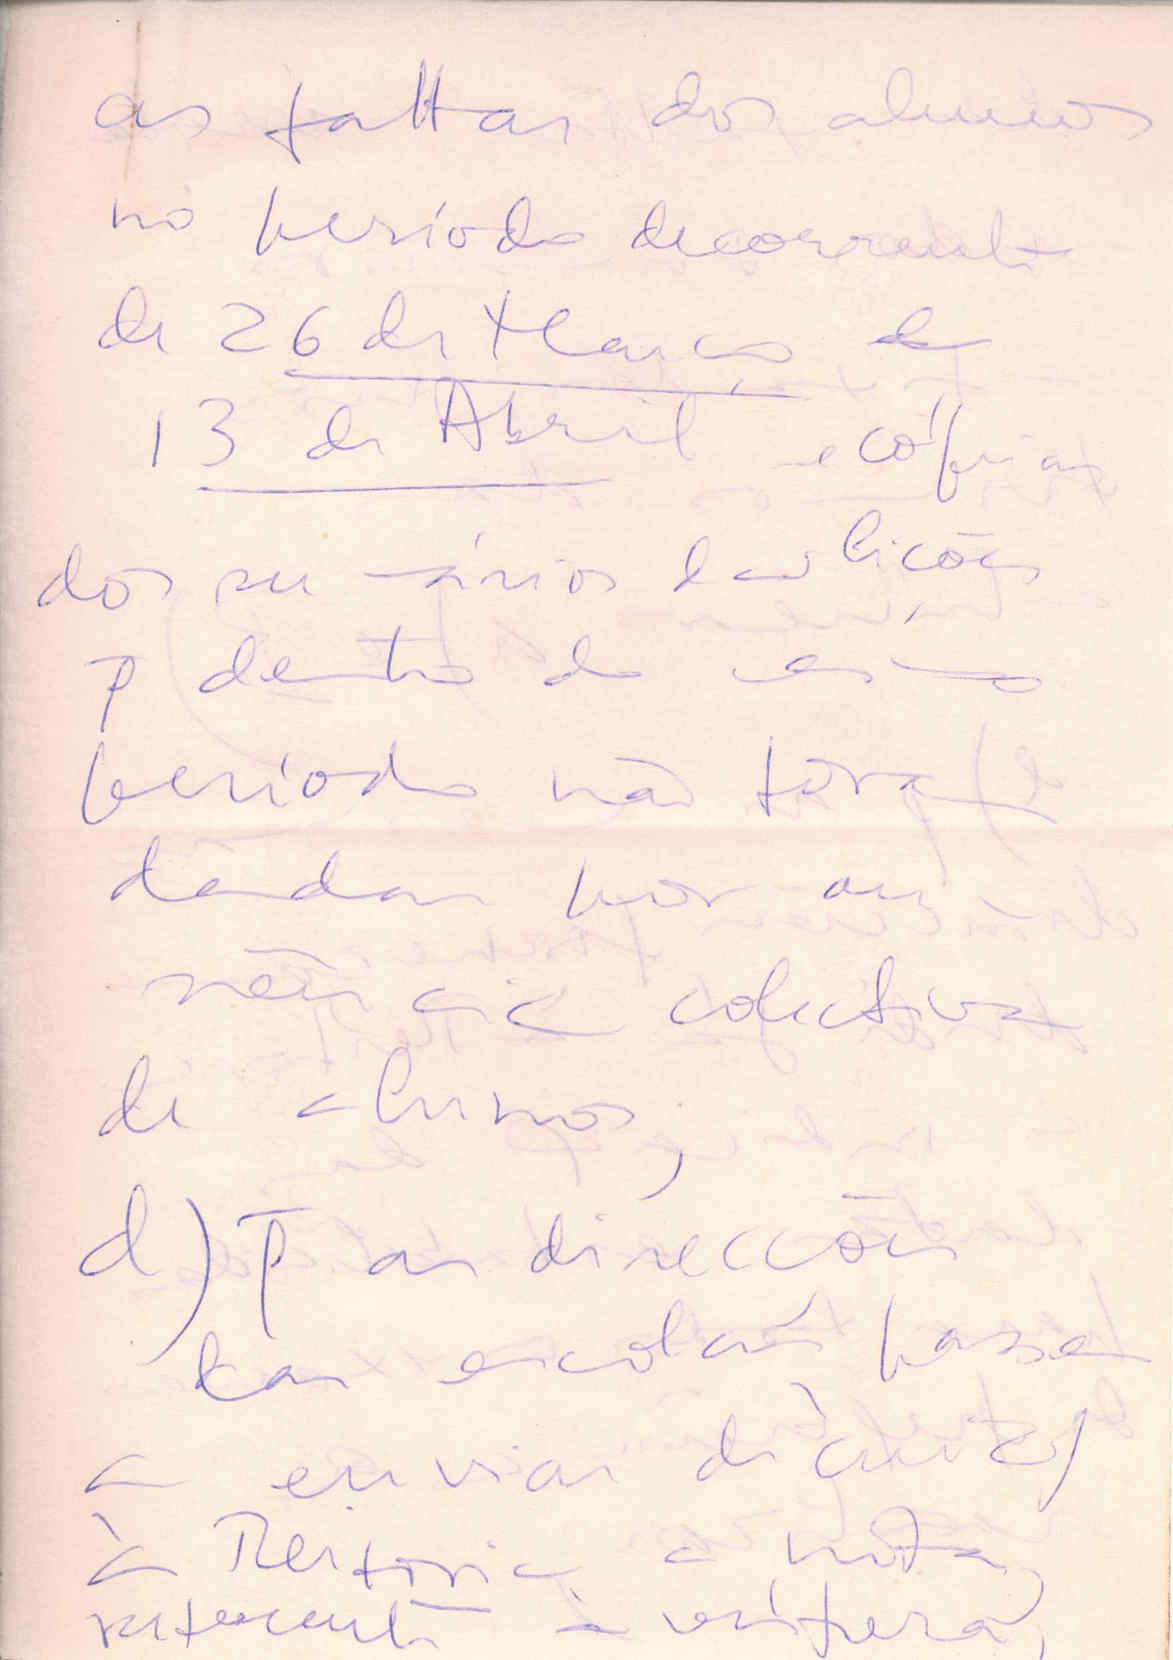 as faltas dos alunos
no período decorrente
de 26 de Março de
13 de Abril e cópias
dos su-ários das lições
q̄ dentro do es-o
período não foram
dadas por au
sência colectiva
de alunos;
d) q̄ as direcções
das escolas passem
a enviar diàriamte,
à Reitoria a nota,
referente à véspera,